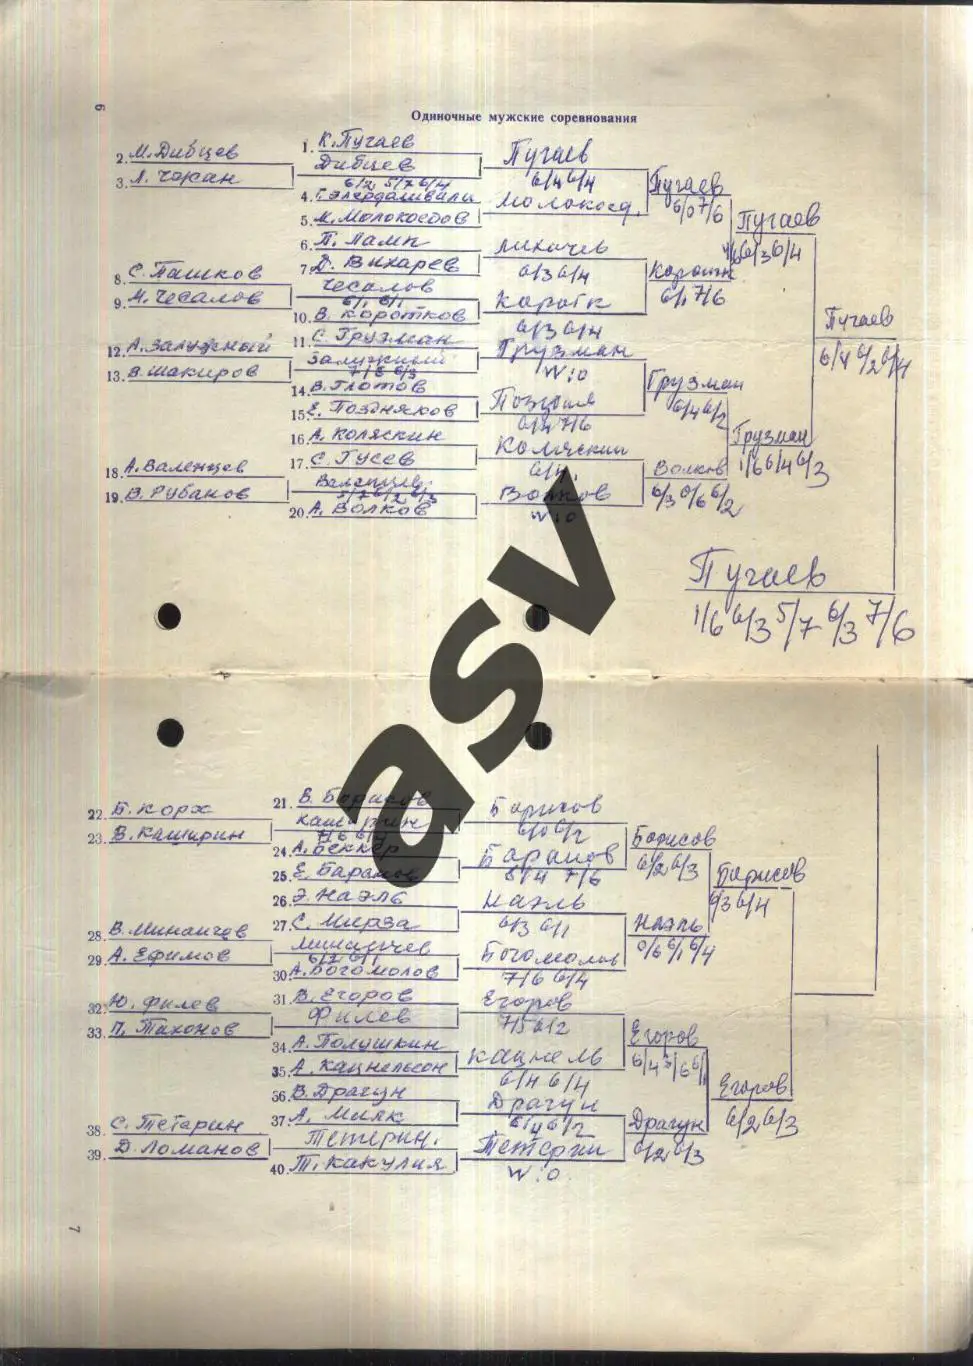 6
Одиночные мужские соревнования
1. К. Пугаев
2. М. Дибцев
3. Л. Чокан
Дибцев
6/2, 5/7 6/4
4.
5. М. Молокоедов
6. П. Ламп
7. Д. Вихарев
8. С. Пашков
9. М. Чесалов
Чесалов
6/1, 6/1
10. В. Коротков
11. С. Грузман
12. А. Залужный
13. В. Шакиров
Залужный
7/5 6/3
14. В. Глотов
15. Е. Поздняков
16. А. Коляскин
17. С. Гусев
18. А. Валенцев
19. В. Рубанов
Валенцев
5/7 6/2 6/3
20. А. Волков
Пугаев
6/4 6/4
Молокоед.
Лихачев
6/3 6/4
Коротк
6/3 6/4
Грузман
w:o
6/4 7/6
Коляскин
6/1,
Волков
w:o
Пугаев
6/0 7/6
Коротк
6/1 7/6
Грузман
6/4 6/2
Волков
6/3 0/6 6/2
Пугаев
6/3 6/4
Грузман
1/6 6/4 6/3
Пугаев
6/4 6/2 6/4
Пугаев
1/6 6/3 5/7 6/3 7/6
asv
21. В. Борисов
22. Б. Корх
23. В. Каширин
Каширин
7/6 6/4
24. А. Беккер
25. Е. Баранов
26. Э. Наэль
27. С. Мирза
28. В. Минаичев
29. А. Ефимов
Минаичев
30. А. Богомолов
31. В. Егоров
32. Ю. Филев
33. П. Тахонов
Филев
34. А. Полушкин
35. А. Кацнельсон
36. В. Драгун
37. А. Милк
38. С. Тетерин
39. Д. Ломанов
Тетерин.
40. Т. Какулия
Борисов
6/0 6/2
Баранов
6/4 7/6
Наэль
6/3 6/1
Богомолов
7/6 6/4
Егоров
7/5 6/2
Кацнель
6/4 6/4
Драгун
6/4 6/2
Тетерин
w:o.
Борисов
6/2 6/3
Наэль
0/6 6/1 6/4
Егоров
6/4 3/6 6/1
Драгун
6/2 6/3
Борисов
6/3 6/4
Егоров
6/2 6/3
7